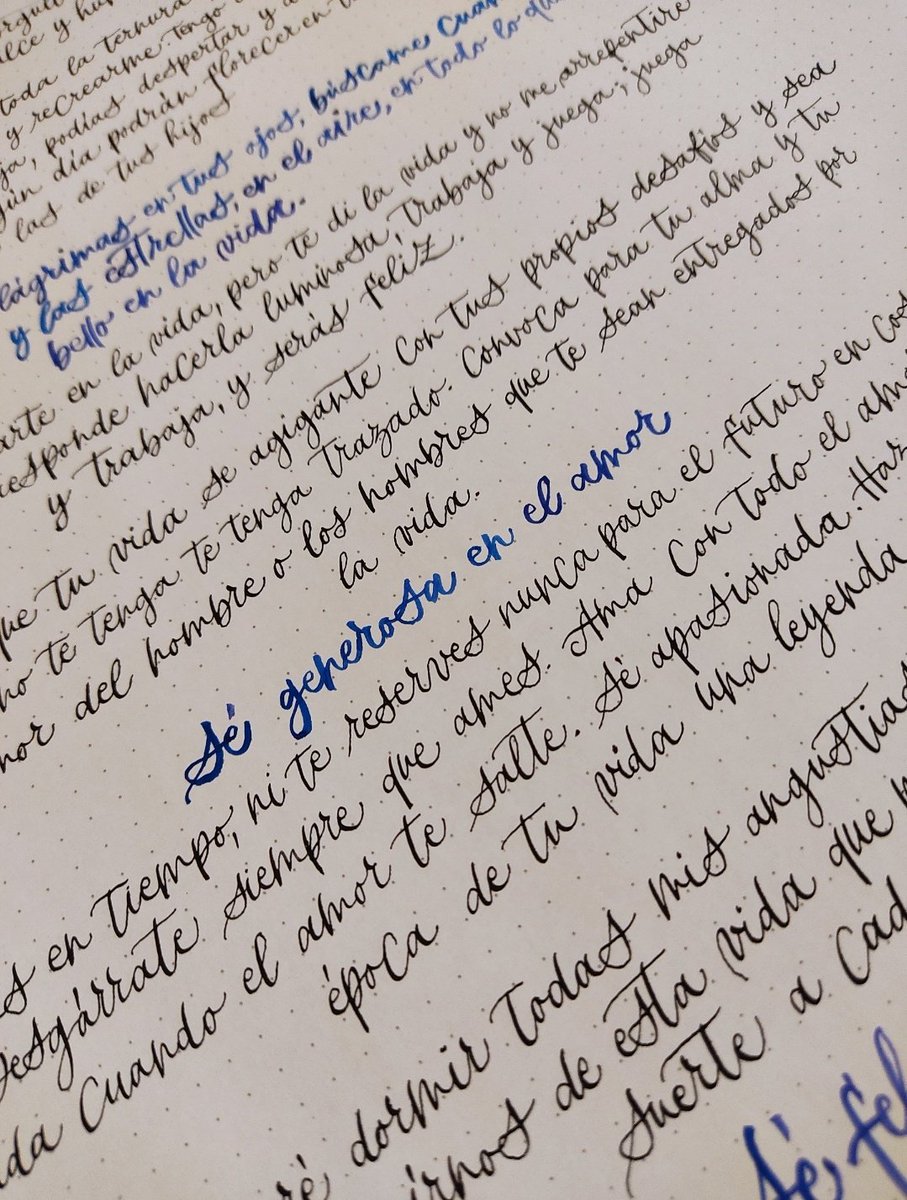 lce y hu
toda la ternura
y recrearme. Tengo
ja, podías despertar y a
gún día podrán florecer en t
las de tus hijos
lágrimas en tus ojos, búscame cuan
y las estrellas, en el aire, en todo lo qu
bello en la vida.
arte en la vida, pero te di la vida y no me arrepentiré
responde hacerla luminosa, trabaja y juega; juega
y trabaja, y serás feliz.
que tu vida se agigante con tus propios desafíos y sea
no te tenga te tenga trazado. Convoca para tu alma y tu
mor del hombre o los hombres que te sean entregados por
la vida.
Sé generosa en el amor
s en tiempo, ni te reserves nunca para el futuro en cos
Desgárrate siempre que ames. Ama con todo el amo
da cuando el amor te salte. Sé apasionada. Haz
época de tu vida una leyenda
ré dormir todas mis angustias
irnos de esta vida que n
suerte a cad
Sé fel